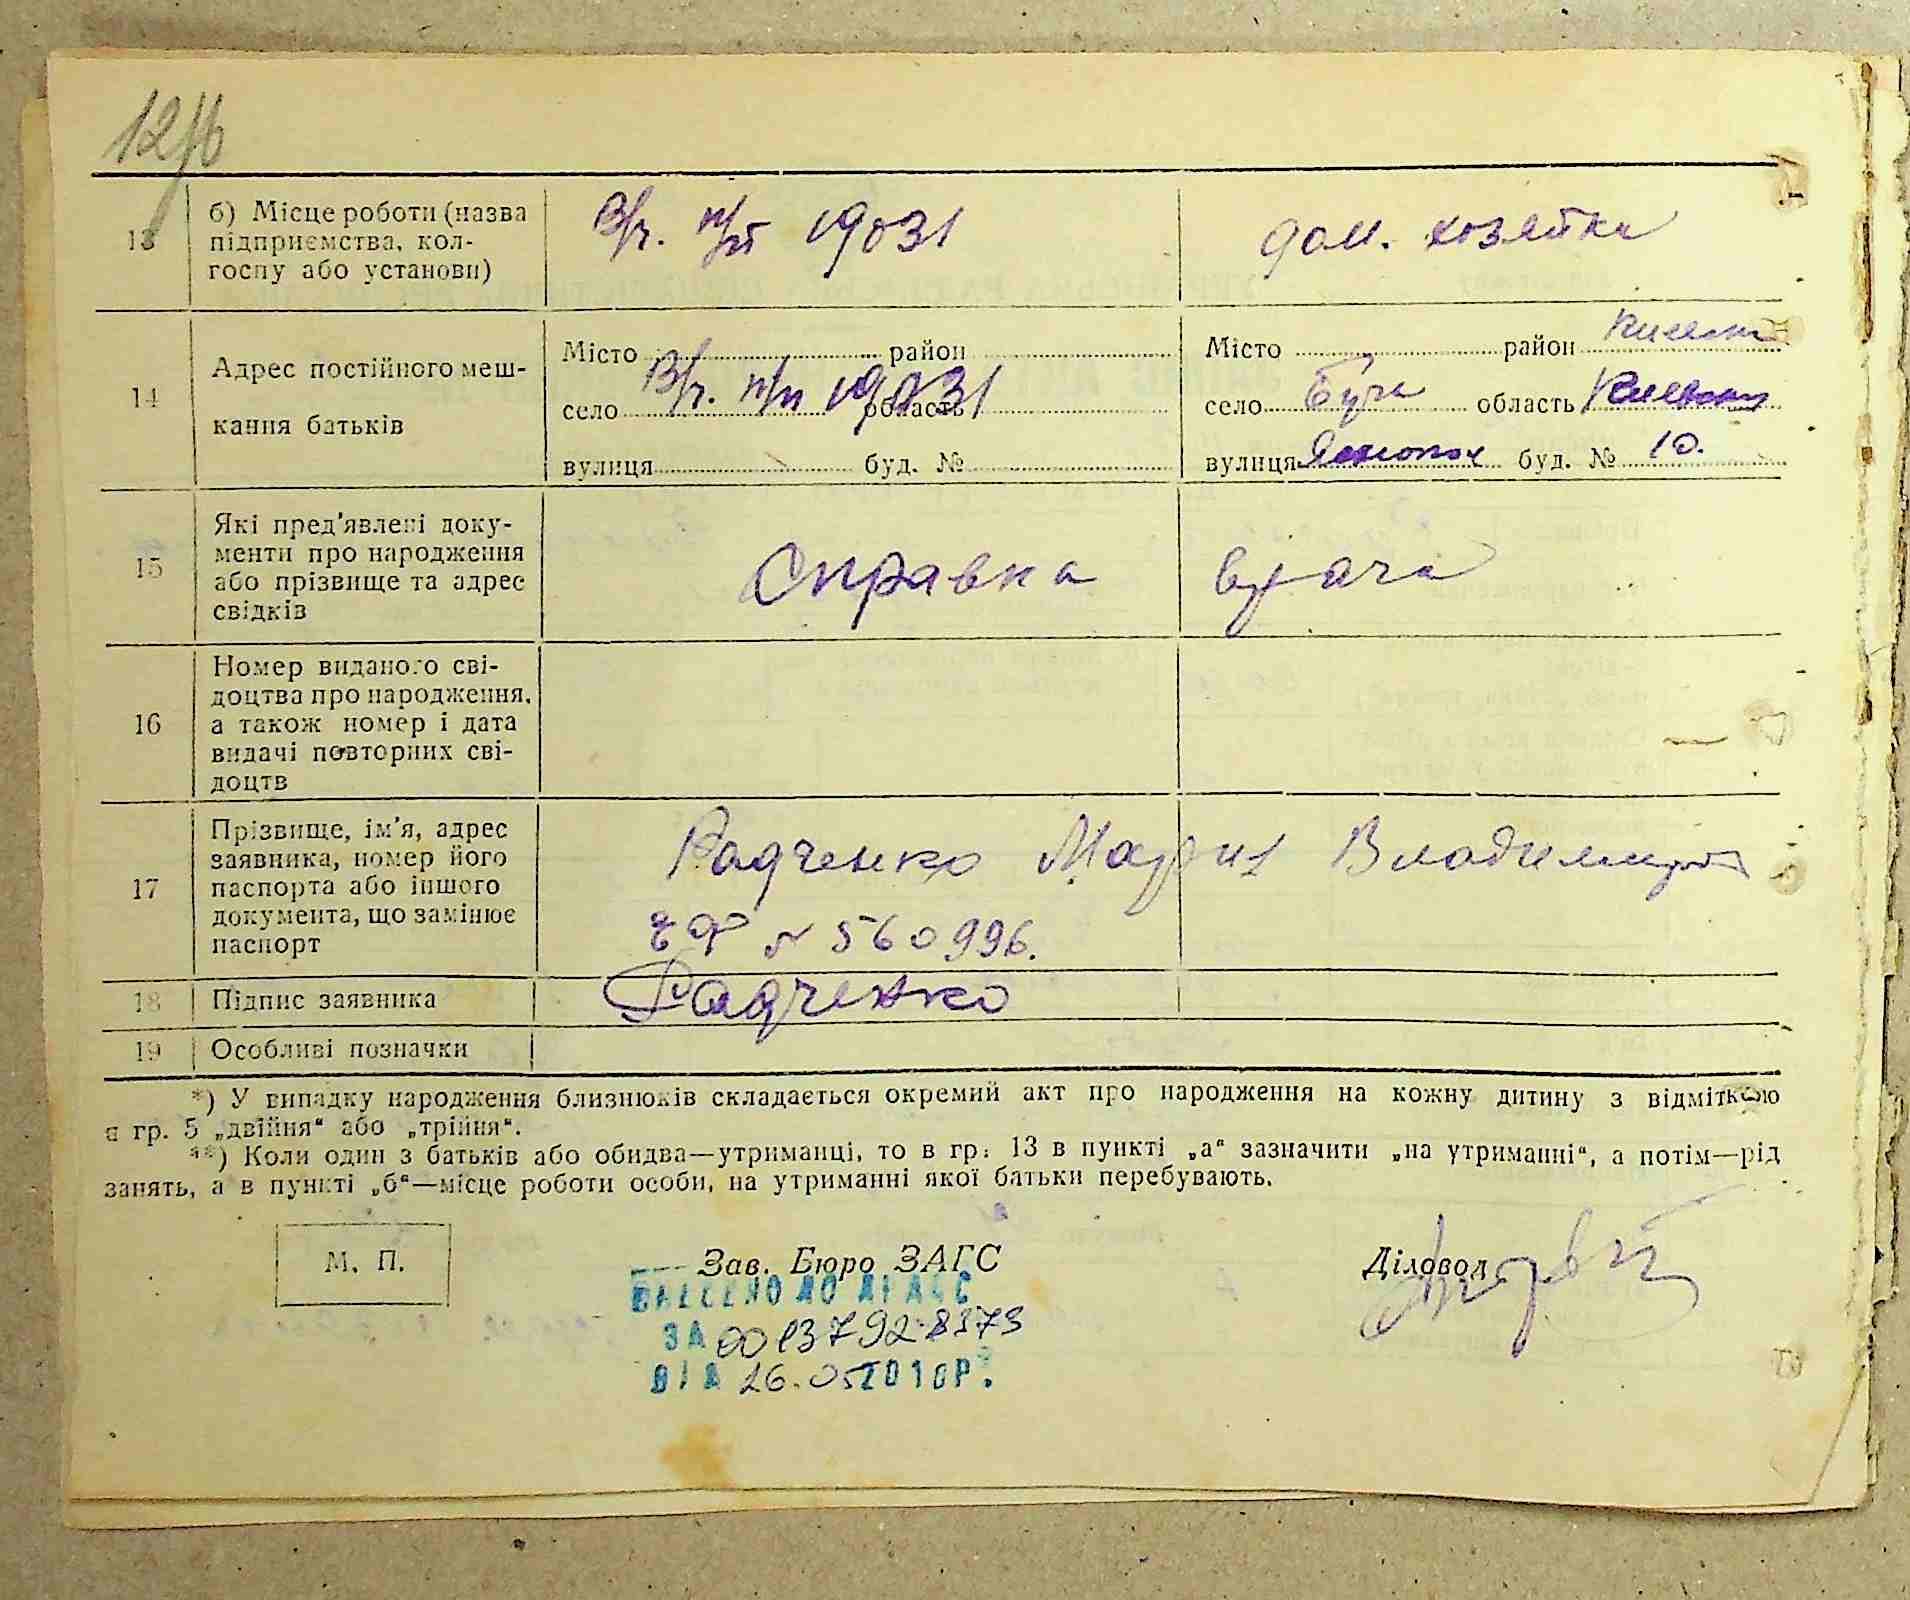 13
б) Місце роботи (назва
підприємства, кол-
госпу або установи)
В/ч. п/п 19031
дом. хозяйка
14
Адрес постійного меш-
кання батьків
Місто район
В/ч. п/п 19031
село область
вулиця буд. №
Місто район Киевск
село Буча область Киевская
вулиця буд. № 10.
15
Які пред'явлені доку-
менти про народження
або прізвище та адрес
свідків
Справка врача
16
Номер виданого сві-
доцтва про народження,
а також номер і дата
видачі повторних сві-
доцтв
17
Прізвище, ім'я, адрес
заявника, номер його
паспорта або іншого
документа, що замінює
паспорт
Радченко Мария Владимир
№ 560996.
18
Підпис заявника
Радченко
19
Особливі позначки
*) У випадку народження близнюків складається окремий акт про народження на кожну дитину з відміткою
в гр. 5 „двійня“ або „трійня“.
**) Коли один з батьків або обидва—утриманці, то в гр. 13 в пункті „а“ зазначити „на утриманні“, а потім—рід
занять, а в пункті „б“—місце роботи особи, на утриманні якої батьки перебувають.
М. П.
Зав. Бюро ЗАГС
Діловод
ВНЕСЕНО ДО ДРАЦС
ЗА 00137928373
ВІД 26.05.2010Р.